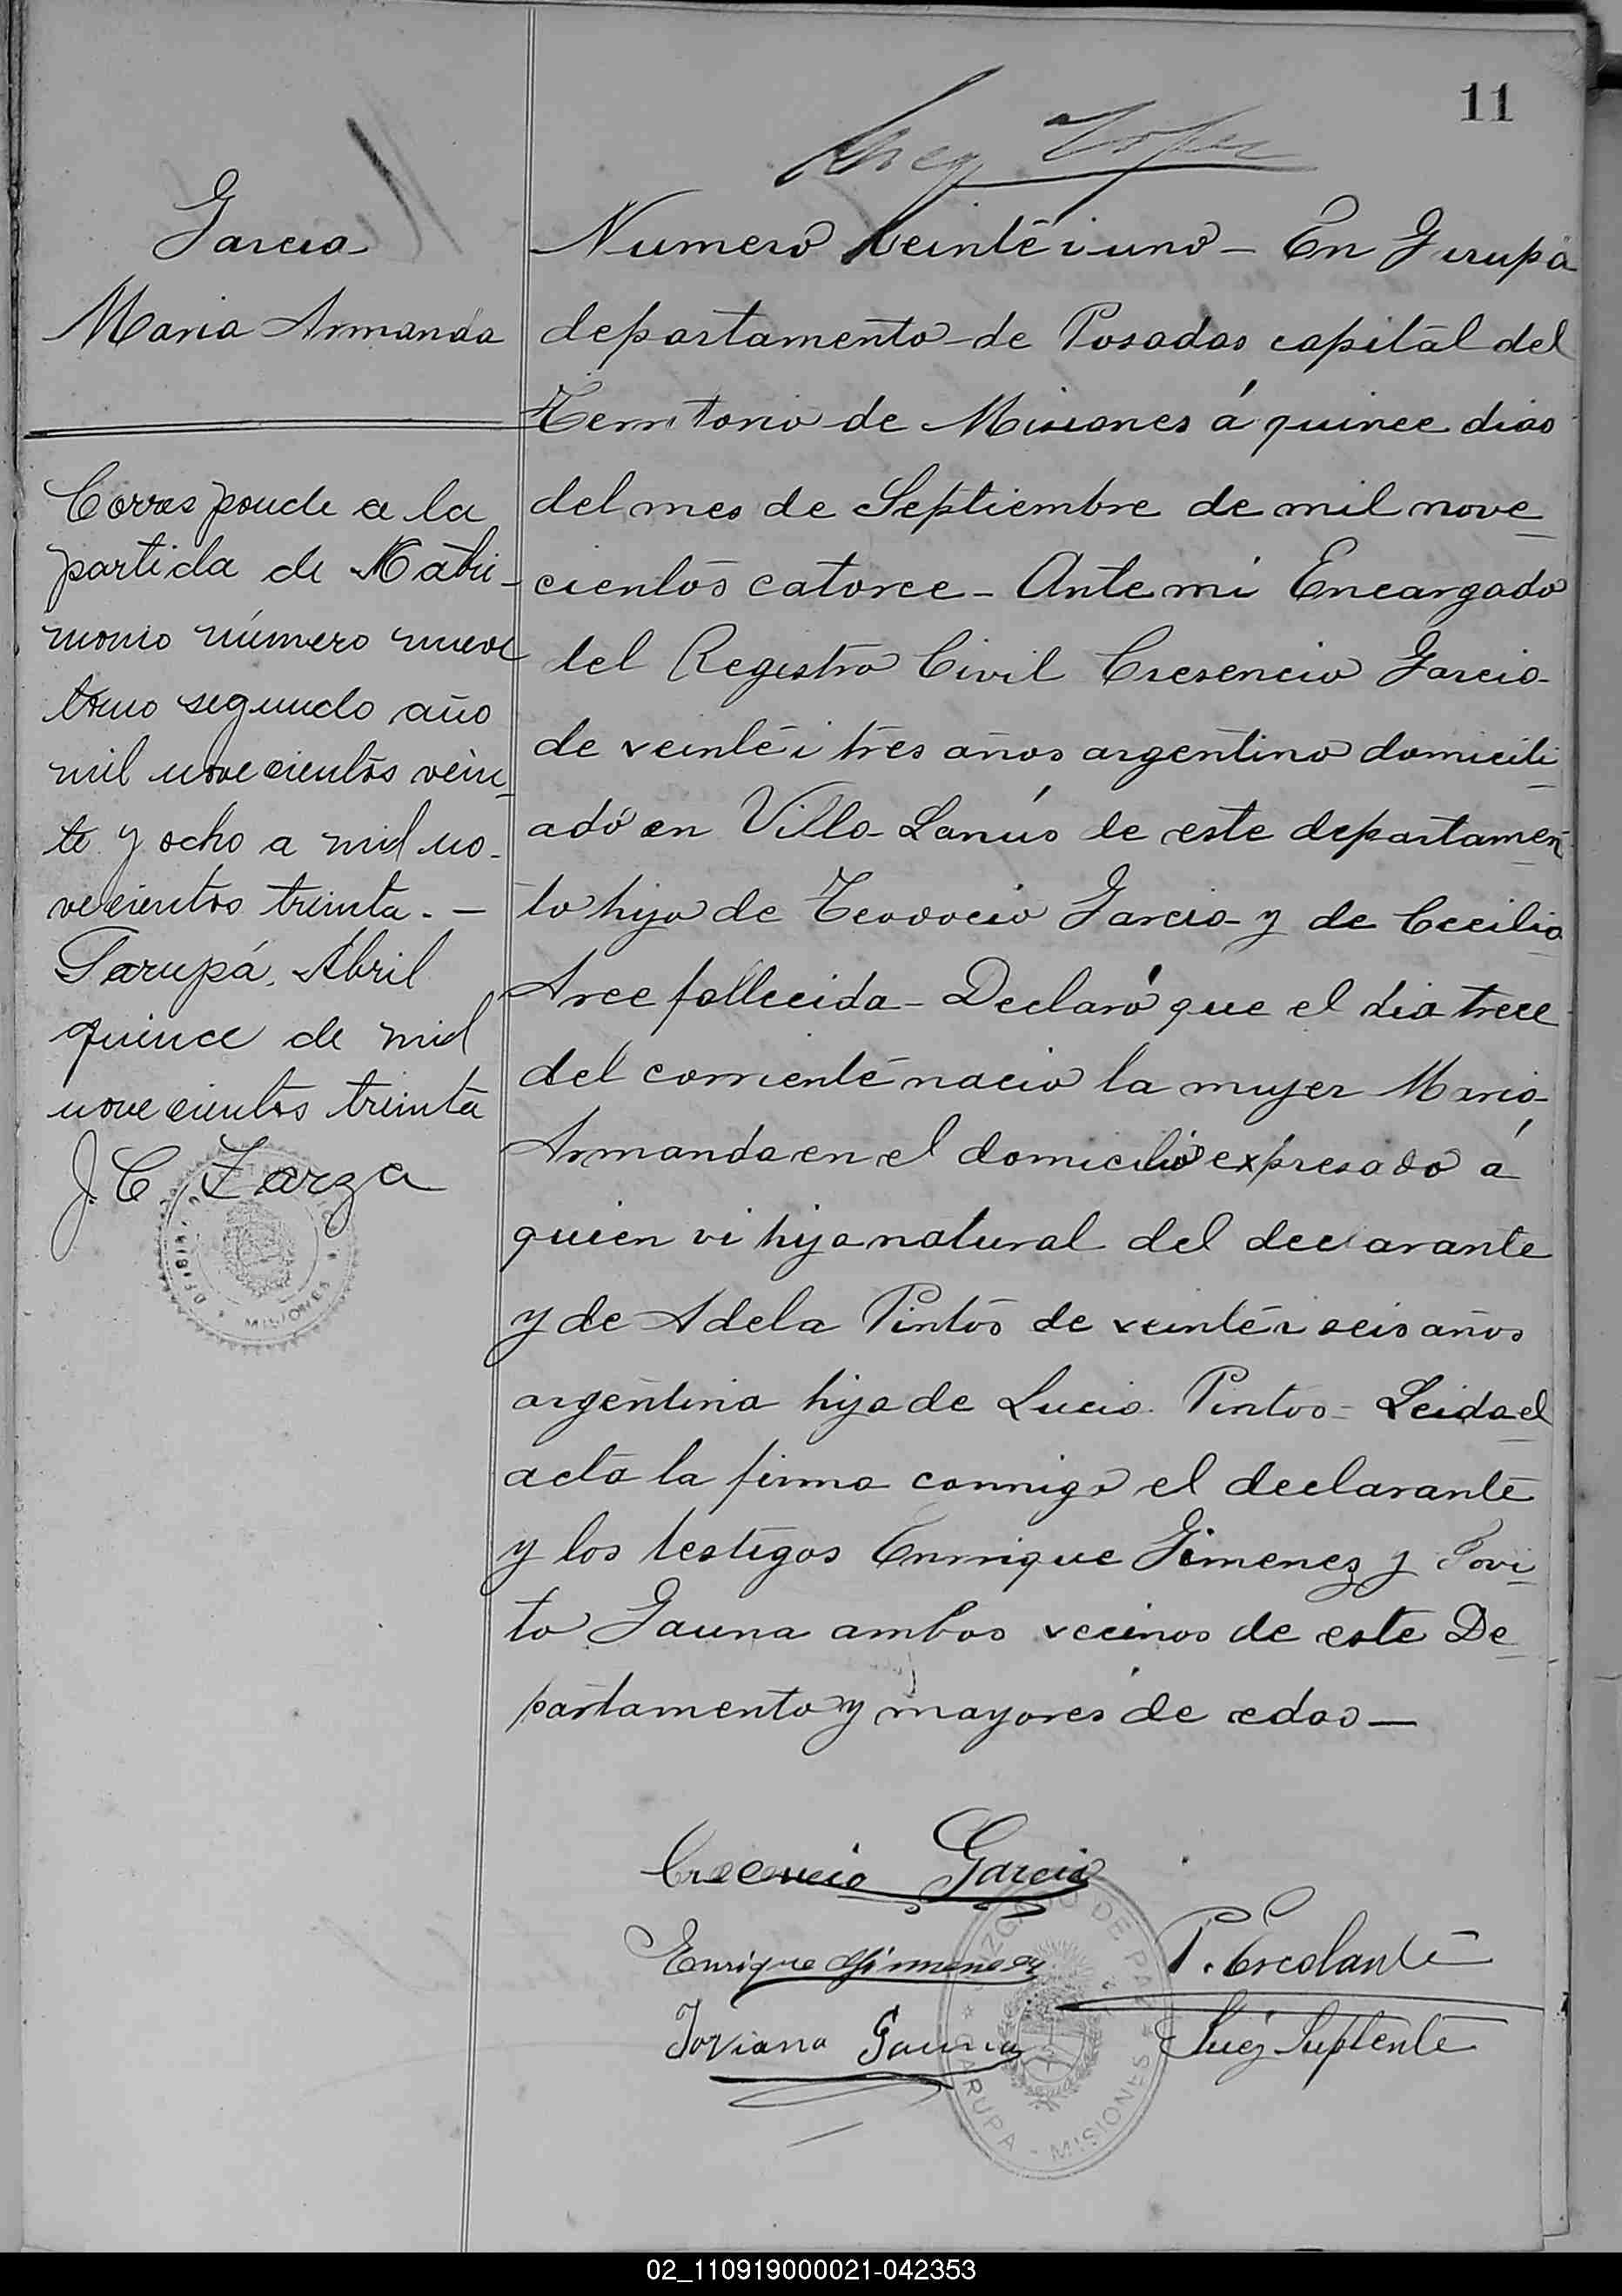 11
Garcia
Maria Armanda
Corresponde a la
partida de Matri-
monio número nueve
tomo segundo año
mil novecientos vein-
te y ocho a mil no-
vecientos treinta. —
Garupá, Abril
quince de mil
novecientos treinta
J. C. Zarza
MISIONES
Numero veinte i uno — En Garupá
departamento de Posadas capital del
Territorio de Misiones á quince dias
del mes de Septiembre de mil nove-
cientos catorce — Ante mi Encargado
del Registro Civil Cresencio Garcia
de veinte i tres años argentino domicili-
ado en Villa Lanús de este departamen-
to hijo de Teodocio Garcia y de Cecilia
Arce fallecida — Declaró que el dia trece
del corriente nacio la mujer Maria
Armanda en el domicilio expresado á
quien vi hija natural del declarante
y de Adela Pintos de veinte i seis años
argentina hija de Lucia Pintos — Leida el
acta la firma conmigo el declarante
y los testigos Enrrique Gimenez y Jovi-
to Gauna ambos vecinos de este De-
partamento y mayores de edad —
Crecencio Garcia
Enrique Gimenez
P. Escolante
Joviano Gauna
Juez Suplente
JUZGADO DE PAZ
GARUPA - MISIONES
02_110919000021-042353